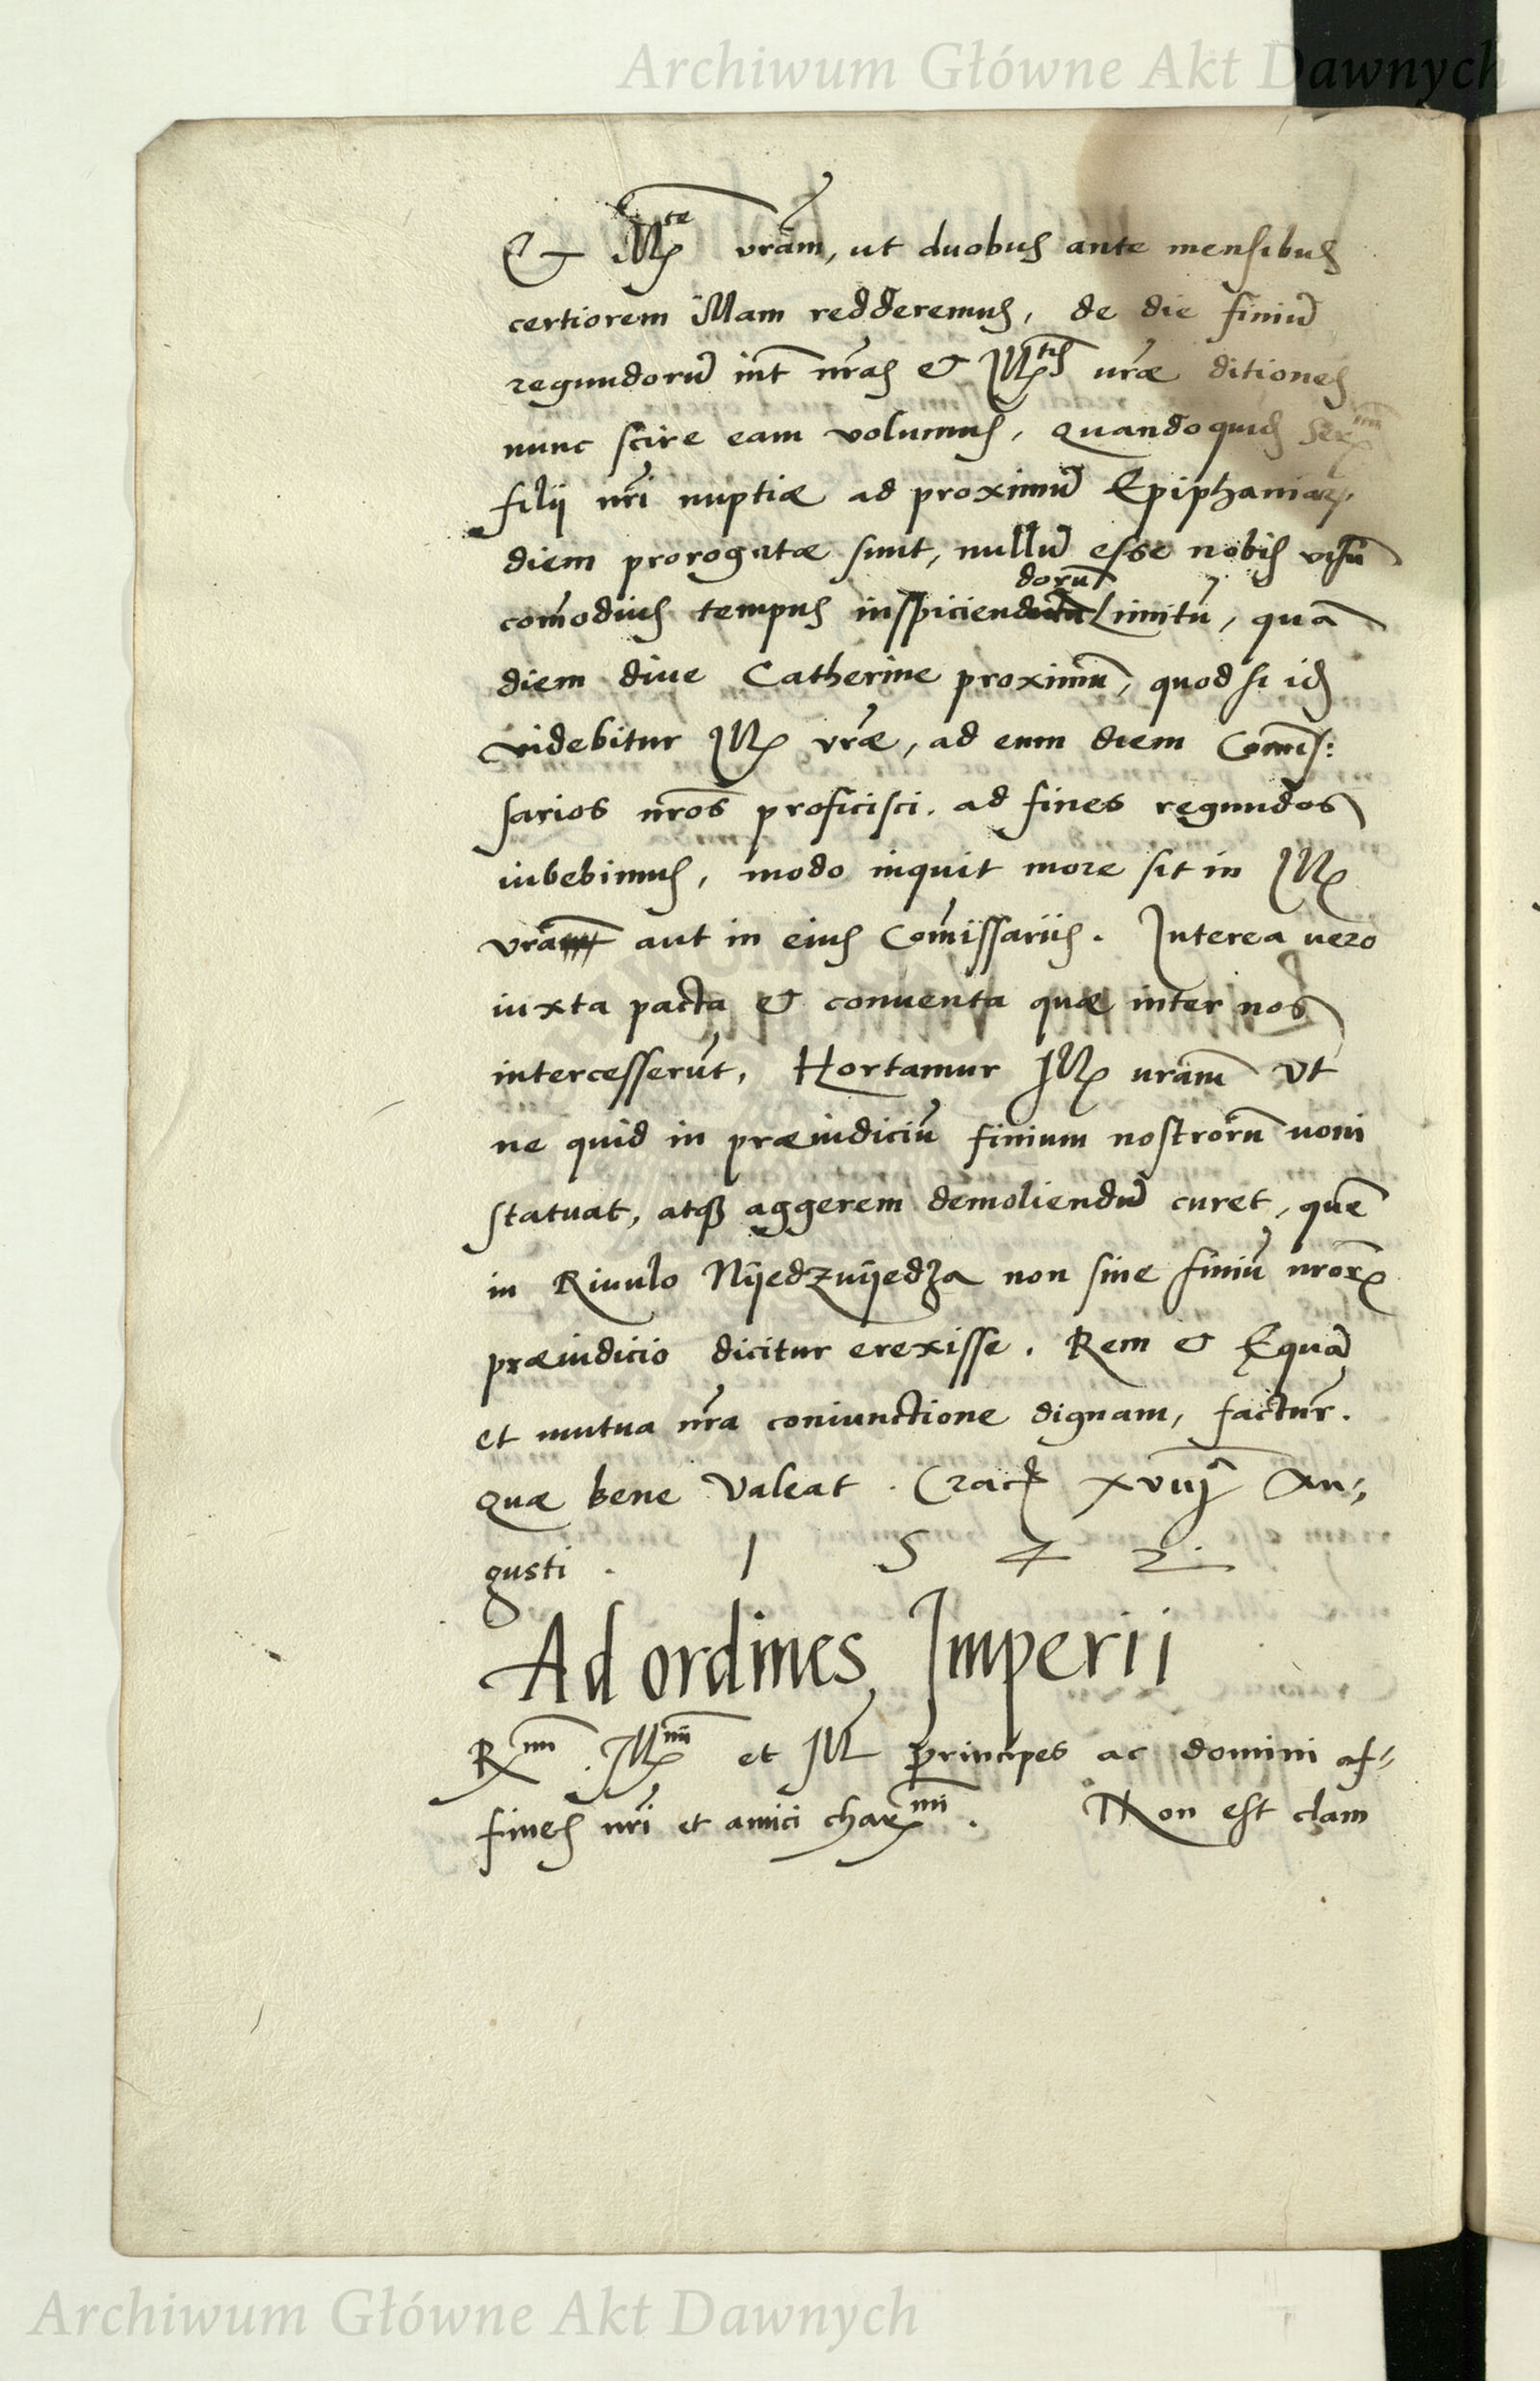 Archiwum Główne Akt Dawnych
Et Mtẽ vrãm, ut duobus ante mensibus
certiorem illam redderemus, de die finiũ
regundorũ int̃ nr̃as et Mtis vr̃æ ditiones
nunc scire eam volumus, quandoquid Sermi
filij nr̃i nuptiæ ad proximũ Epiphaniarum
diem prorogatæ sunt, nullũ esse nobis visũ
com̃odius tempus inspiciendorũ Limitũ, quã
diem dive Catherine proximũ, quod si id
videbitur M vr̃æ, ad eum diem Com̃is:
sarios nr̃os proficisci ad fines regundos
iubebimus, modo inquit more sit in M
vrã aut in eius Com̃issariis. Interea uero
iuxta pacta et conuenta quæ inter nos
intercesserũt, Hortamur M urãm ut
ne quid in præiudiciũ finium nostrorũ noui
statuat, atq3 aggerem demoliendũ curet, quẽ
in Riuulo Nijedzuijedza non sine finiũ nror̃
præiudicio dicitur erexisse. Rem et Equã
et mutua nr̃a coniunctione dignam, factur̃.
Quæ bene Valeat. Crac xviij Au,,
gusti. 1 5 4 2.
Ad ordines Imperii
Rmi. Illmi et Ill principes ac domini af,,
fines nr̃i et amici charmi. Non est clam
Archiwum Główne Akt Dawnych